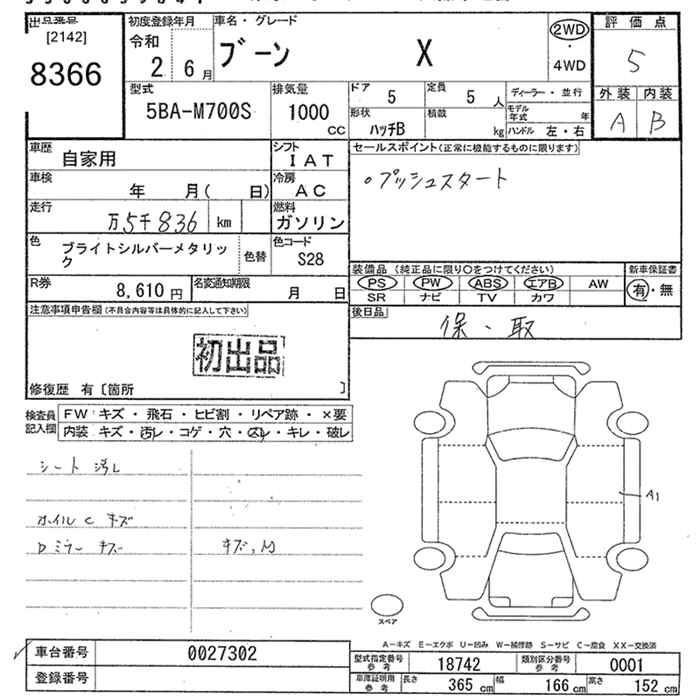 出品番号
[2142]
8366
初度登録年月
令和
2 6月
車名・グレード
ブーン X
2WD
・
4WD
評価点
5
外装 内装
A B
型式
5BA-M700S
排気量
1000
CC
ドア 5
定員 5 人
ディーラー・並行
形状 ハッチB
積載 kg
モデル年式 年
ハンドル 左・右
車歴 自家用
シフト
IAT
セールスポイント(正常に機能するものに限ります)
○プッシュスタート
車検 年 月( 日)
冷房
AC
走行 万5千836 km
燃料
ガソリン
色 ブライトシルバーメタリック
色替
色コード
S28
装備品 (純正品に限り○をつけてください)
新車保証書
PS PW ABS エアB AW
有・無
SR ナビ TV カワ
R券 8,610 円
名変通知期限 月 日
後日品
保・取
注意事項申告欄(不具合内容等は具体的に記入して下さい)
初出品
修復歴 有〔箇所 〕
検査員記入欄
FW キズ・飛石・ヒビ割・リペア跡・×要
内装 キズ・汚レ・コゲ・穴・スレ・キレ・破レ
シート 汚レ
ホイルC キズ
Dミラー キズ
キズ、凹
A1
スペア
A-キズ E-エクボ U-凹み W-補修跡 S-サビ C-腐食 XX-交換済
車台番号 0027302
登録番号
型式指定番号参考 18742
類別区分番号参考 0001
車庫証明用参考 長さ 365 cm 幅 166 cm 高さ 152 cm